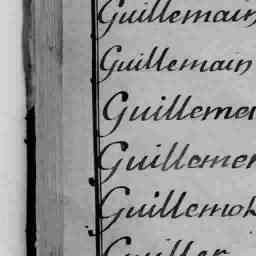 Guillemain
Guillemain
Guilleme
Guillemer
Guillemot
Guiller